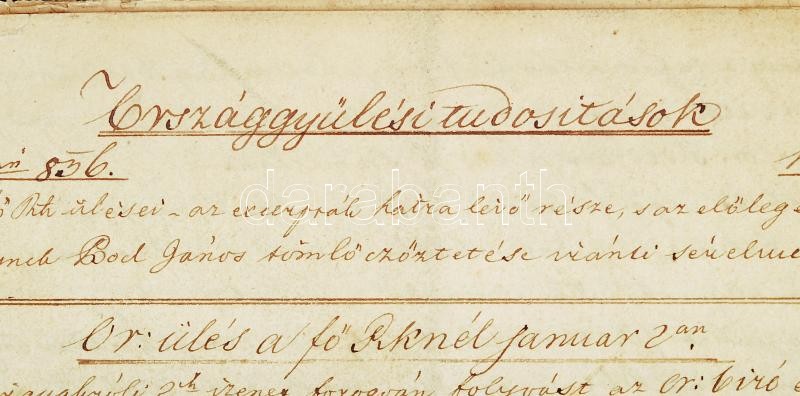 Országgyülési tudositások
836.
Rk ülései – az excerpták hátra levő része, s az előleg
Bod János tömlöczöztetése iránti sérelme
Or: ülés a fő Rknél januar 2an
2ik izenet forogván folyvást az Or: biró
darabanth